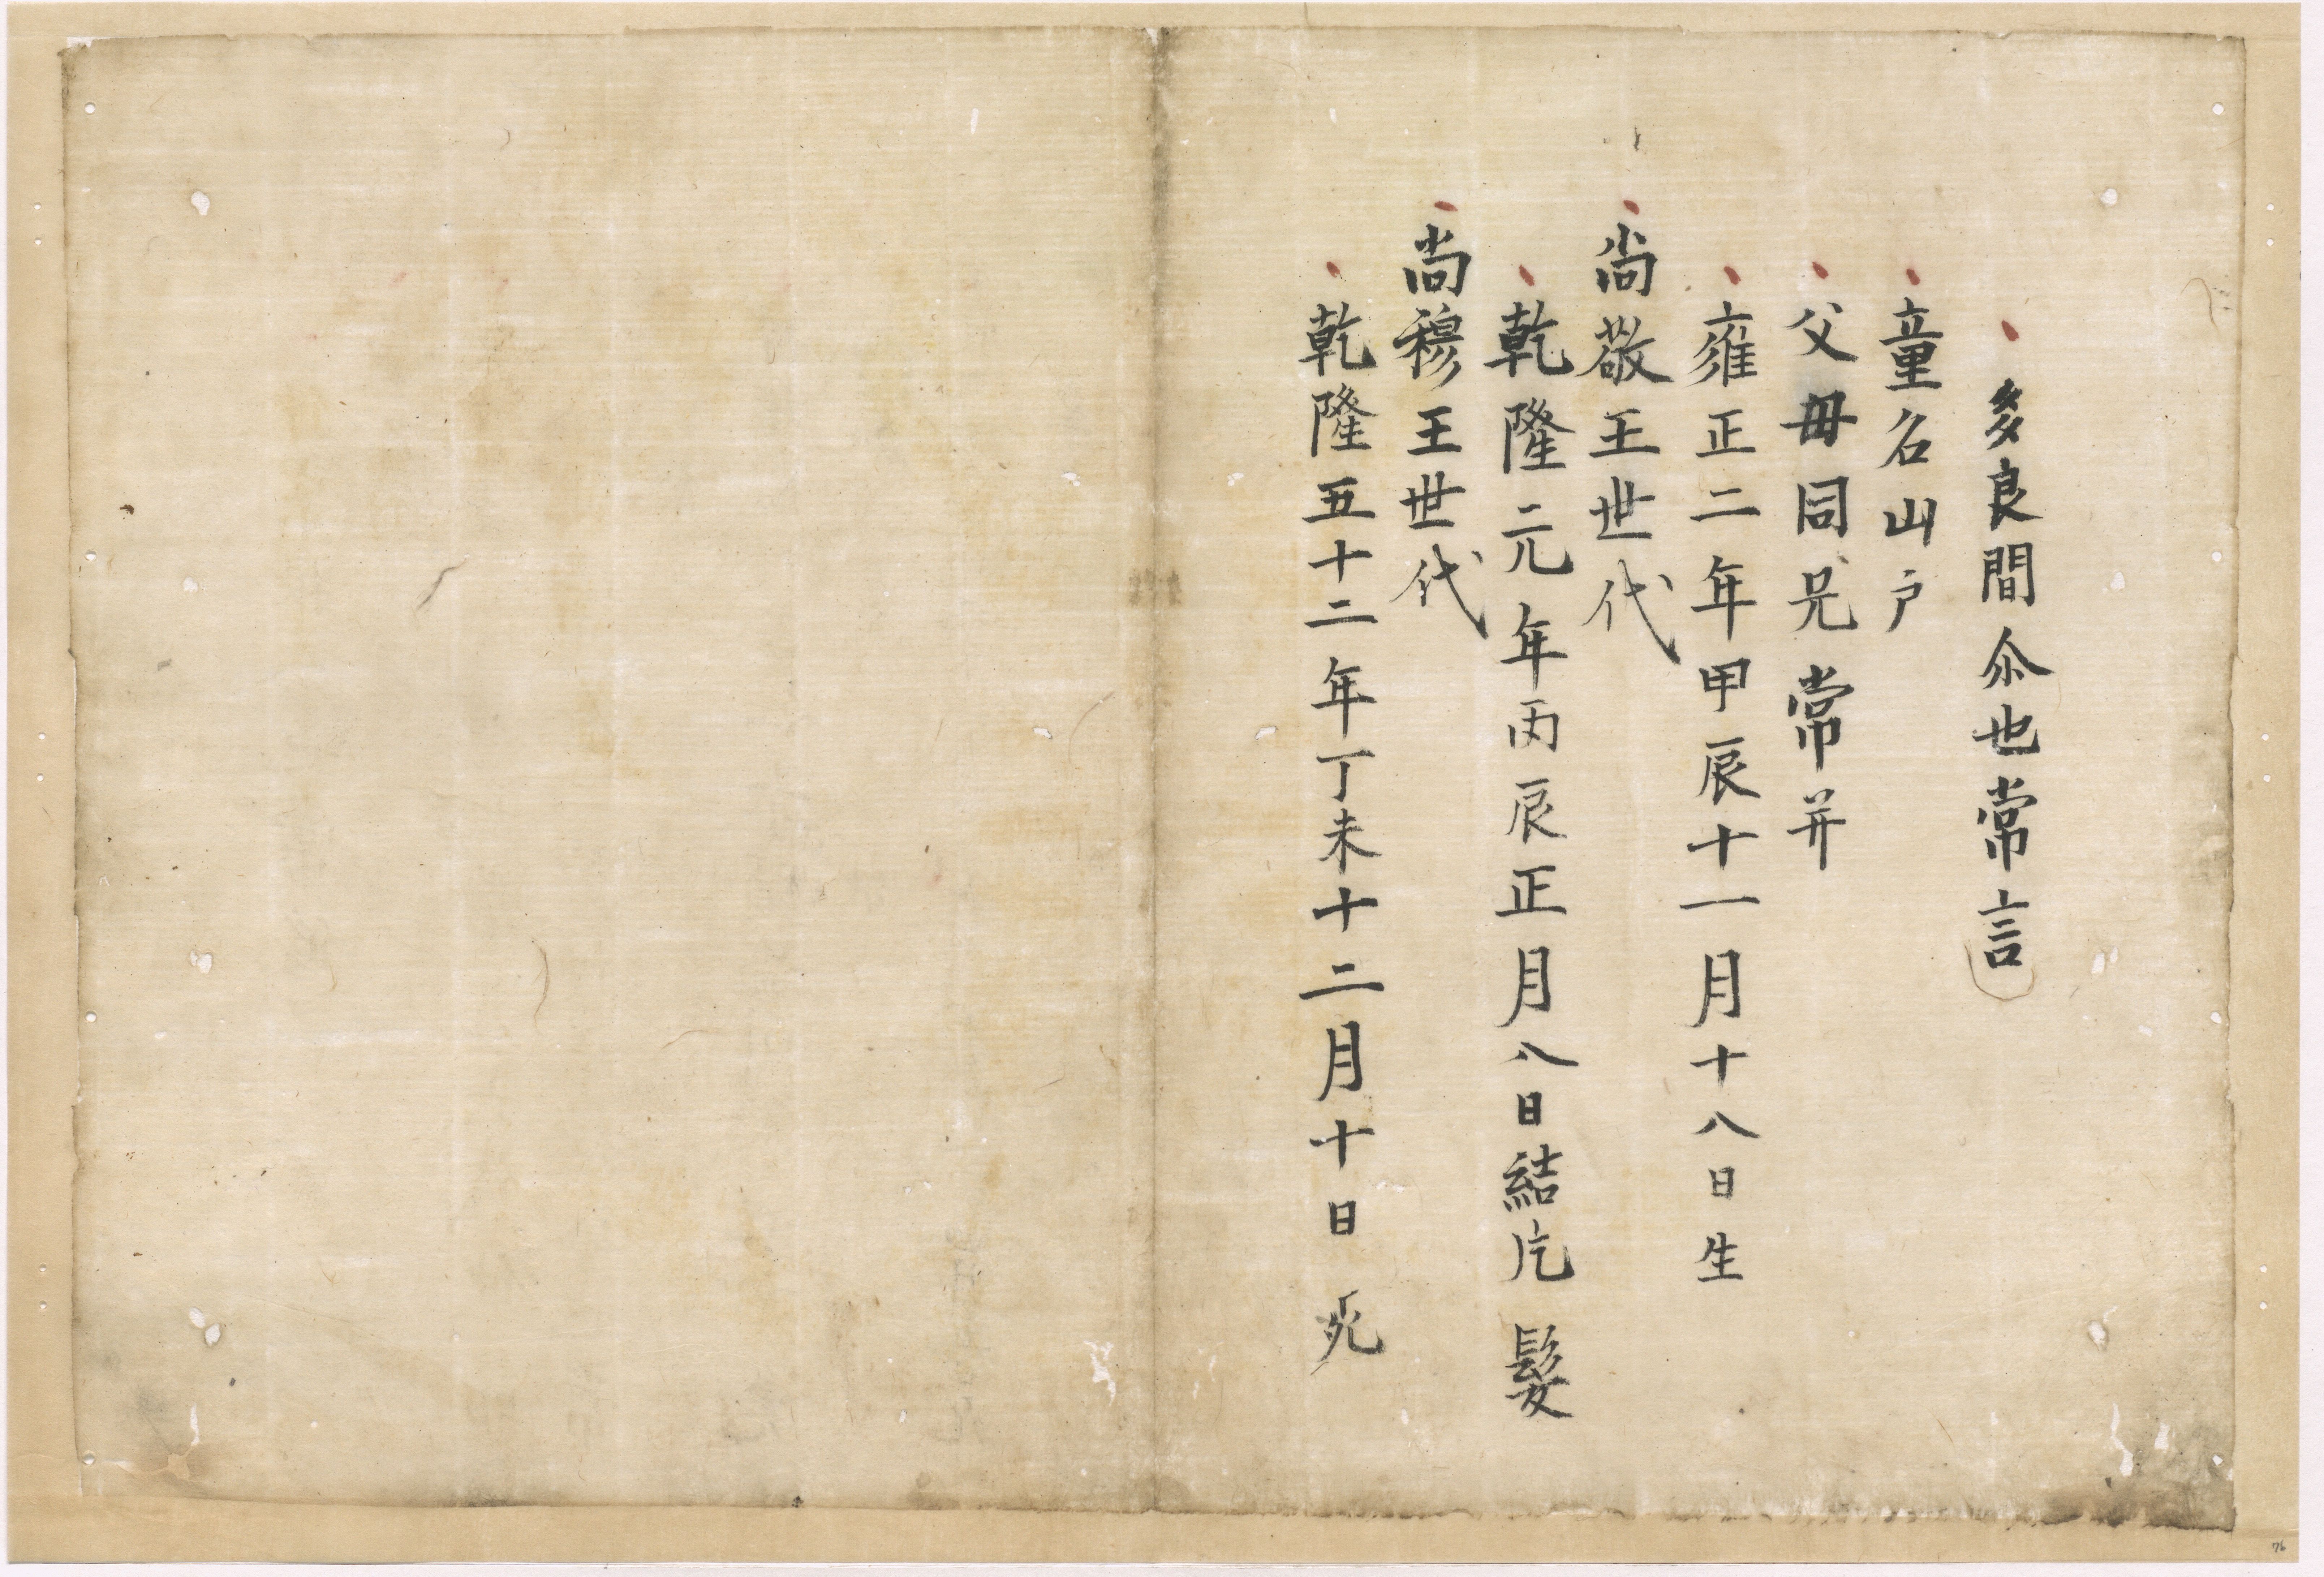 多良間尒也常言
童名山戶
父母同兄常并
雍正二年甲辰十一月十八日生
尚敬王世代
乾隆元年丙辰正月八日結片髮
尚穆王世代
乾隆五十二年丁未十二月十日死
76